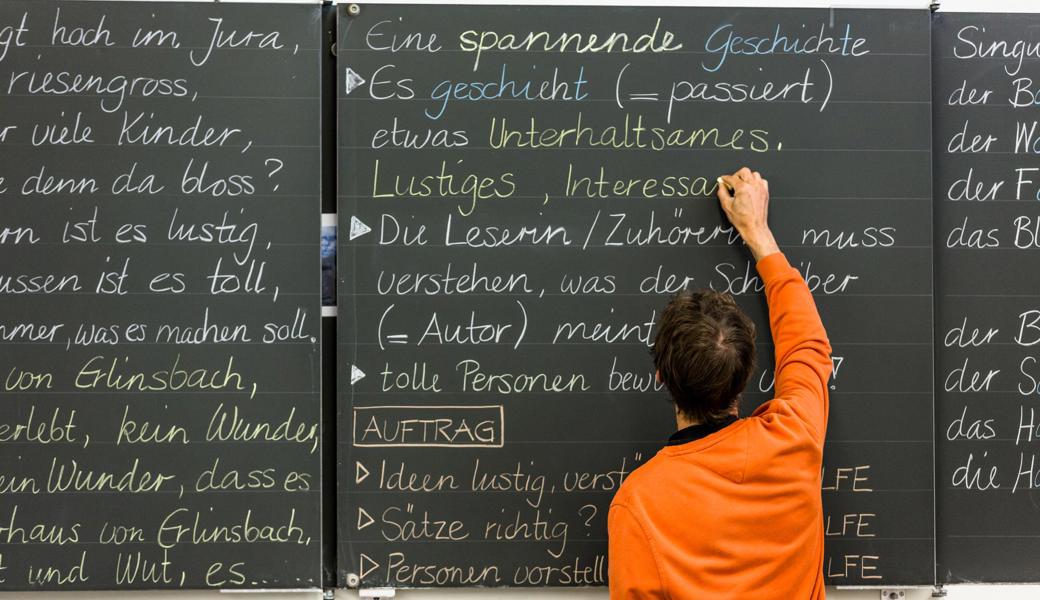 gt hoch im Jura,
riesengross,
r viele Kinder,
e denn da bloss?
rn ist es lustig,
ussen ist es toll,
mmer, was es machen soll.
von Erlinsbach,
erlebt, kein Wunder,
ein Wunder, dass es
rhaus von Erlinsbach,
t und Wut, es.....
Eine spannende Geschichte
Es geschieht (= passiert)
etwas Unterhaltsames.
Lustiges , Interessa
Die Leserin / Zuhörerin muss
verstehen, was der Schreiber
(= Autor) meint
tolle Personen bew
AUFTRAG
Ideen lustig, verst LFE
Sätze richtig? LFE
Personen vorstell LFE
Singu
der B
der W
der F
das Bl
der B
der S
das Ha
die Ha